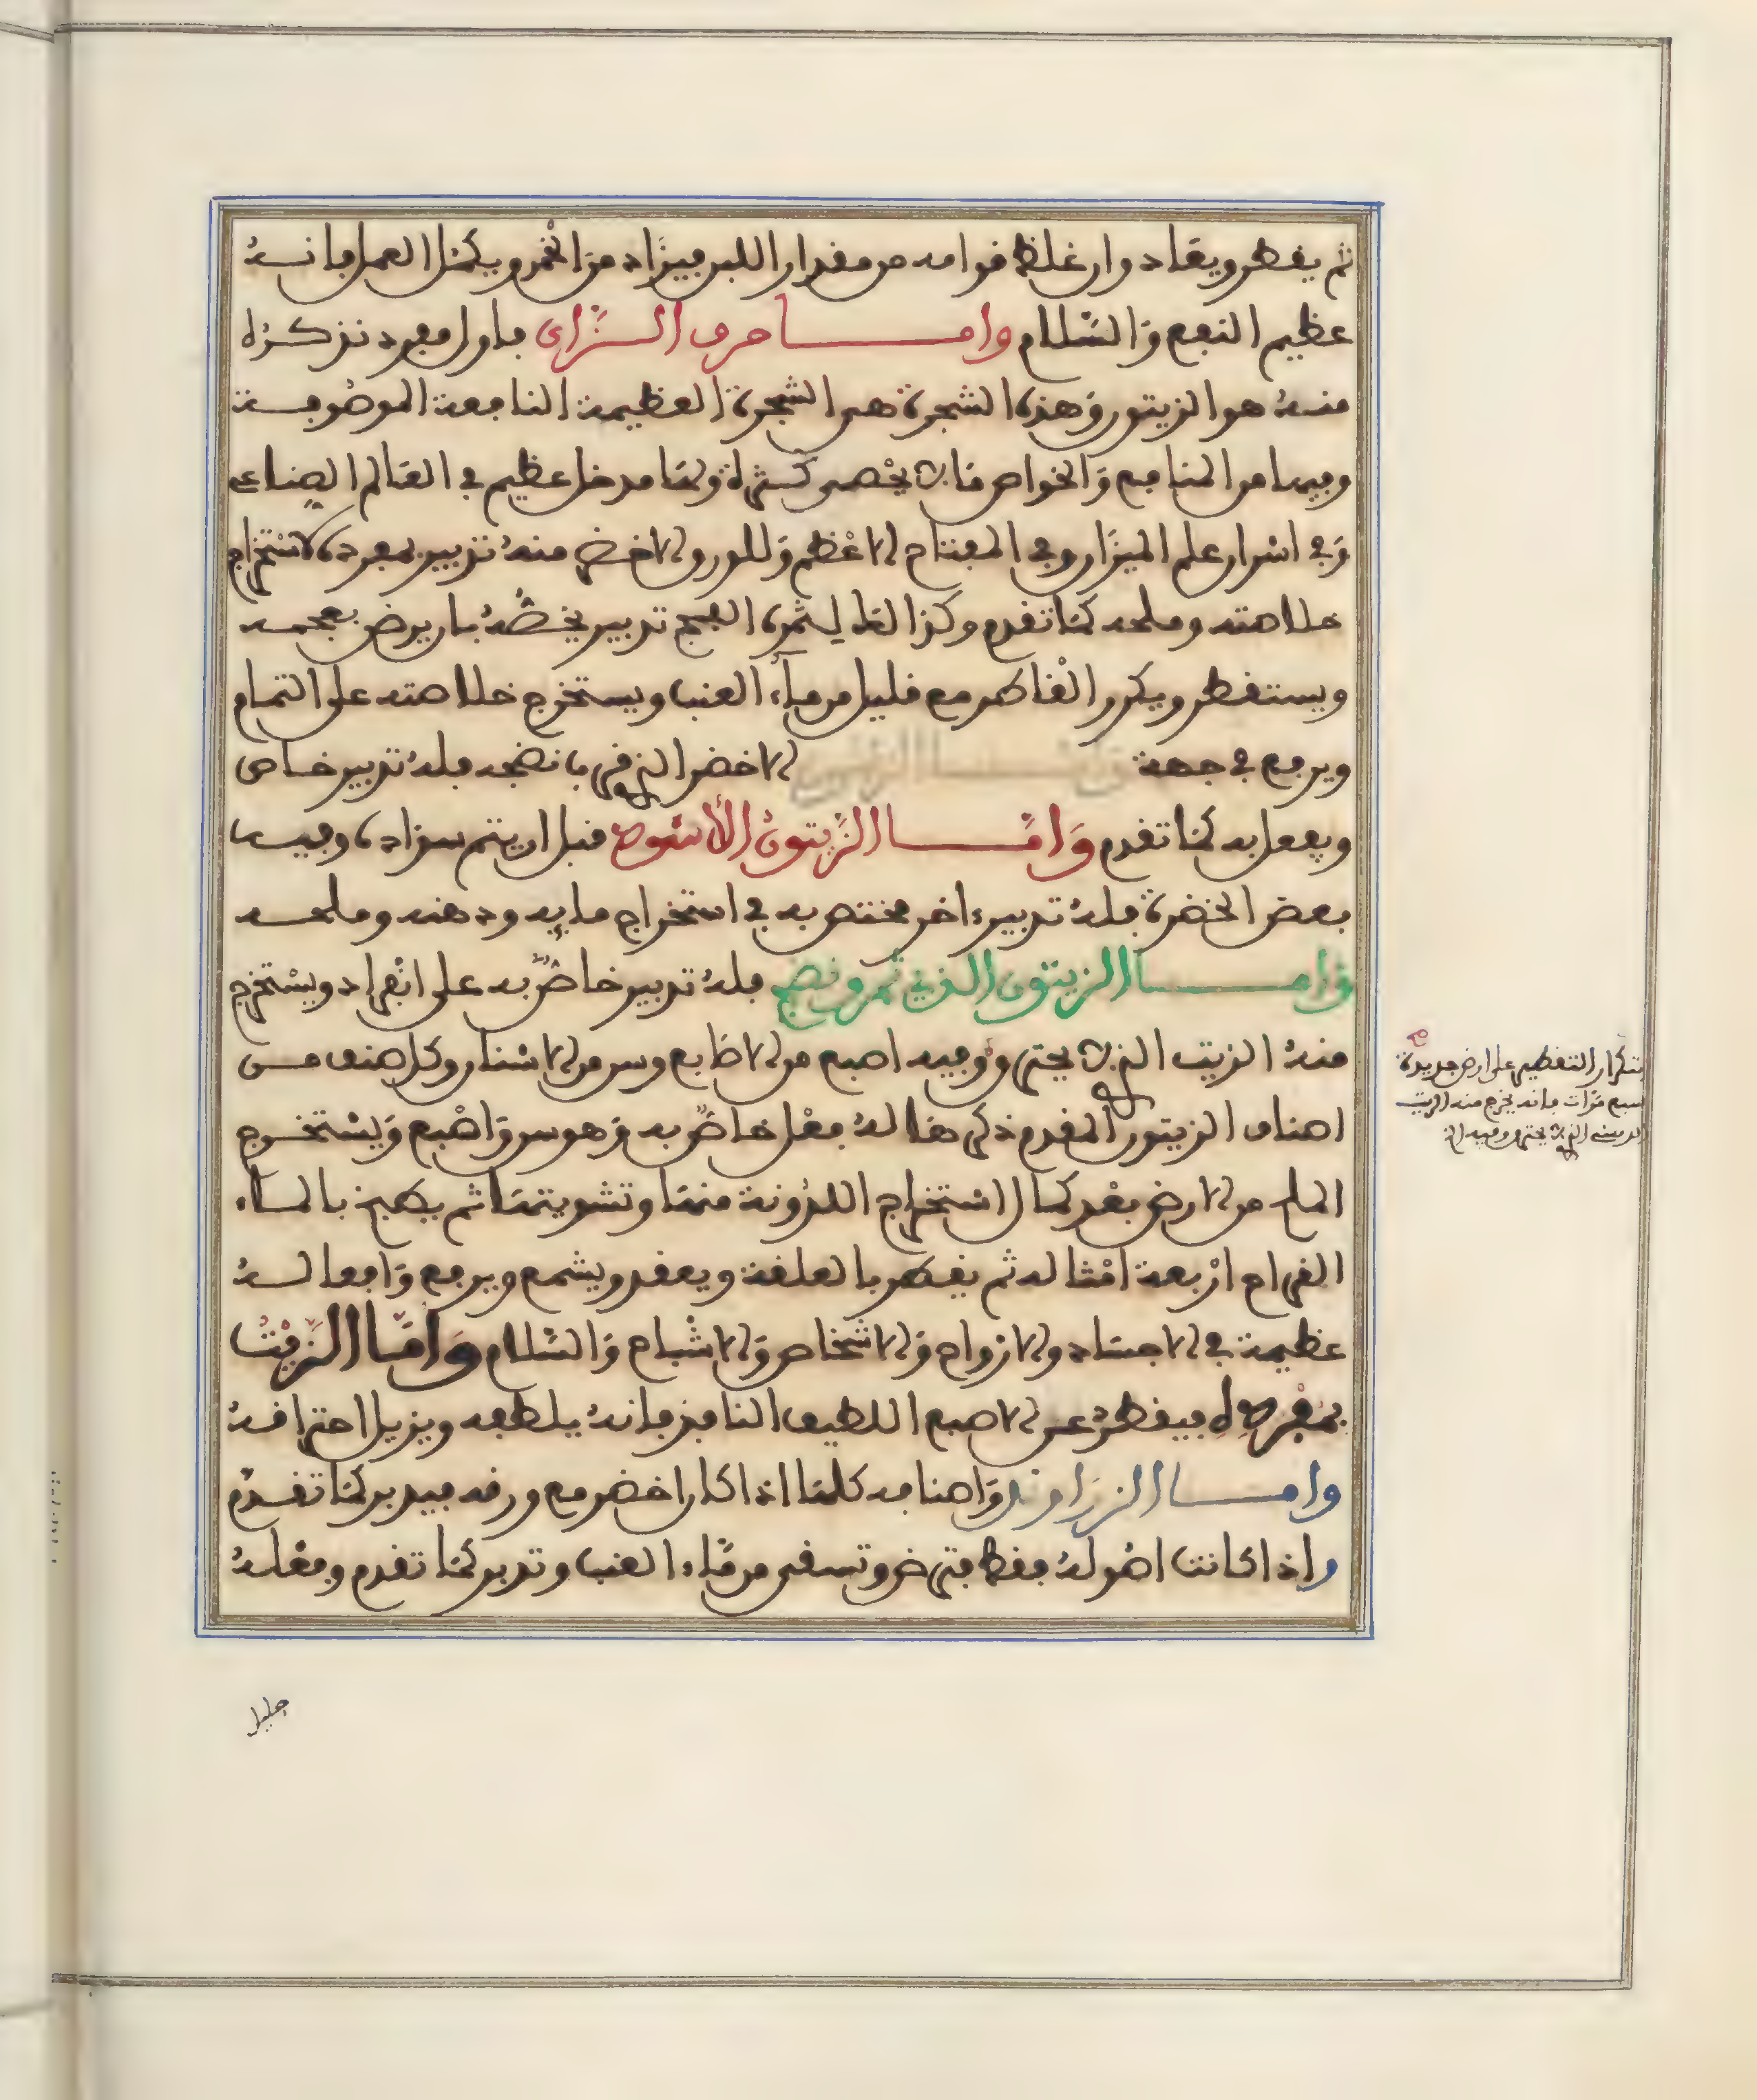 ثم يقطر ويعاد وان غلظ قوامه من مقدار اللبن فيزاد من الخمر ويكمل العمل فانه
عظيم النفع والسلام واما حرف الزاى فاول مفرد نذكره
منه هو الزيتون وهذه الشجرة هى الشجرة العظيمة النافعة الموصوفة
وفيها من المنافع والخواص ما لا يحصى كثرة ولها مدخل عظيم في العالم الصناعى
وفي اسرار علم الميزان وفي المفتاح الاعظم وللورق الاخضر منه تدبير بمفرده كاستخراج
خلاصته وملحه كما تقدم وكذا لثمره الفج تدبير يخصه بان يرض بعجمه
ويستقطر ويكرر القاطر مع قليل من ماء العنب ويستخرج خلاصته على التمام
ويرفع في جهة واما الزيتون الاخضر الذى قرب نضجه فله تدبير خاص
ويفعل به كما تقدم واما الزيتون الأسود قبل ان يتم سواده وفيه
بعض الخضرة فله تدبير اخر مختص به في استخراج مايه ودهنه وملحه
واما الزيتون الذي تمر ونضج فله تدبير خاص به على انفراد ويستخرج
منه الزيت الذى لا يحترق وفيه اصبع من الاصابع وسر من الاسرار وكل صنف من
اصناف الزيتون المقدم ذكرها له فعل خاص به وهو سر واصبع ويستخرج
الملح من الارض بعد كمال استخراج اللدونة منها وتشويتها ثم يطبخ بالماء
القراح اربعة امثاله ثم يقطر بالعلقة ويعقد ويشمع ويرفع وافعاله
عظيمة في الاجساد والارواح والاشخاص والاشباح والسلام واما الزيت
بمفرده فيقطر عن الاصبع اللطيف النافذ فانه يلطفه ويزيل احتراقه
واما الزراوند واصنافه كلها اذا كان اخضر مع ورقه فيدبر كما تقدم
واذا كانت اصوله فقط فترض وتسقى من ماء العنب وتدبر كما تقدم وفعله
جليل
بتكرار التقطير على ارض جديدة
سبع مرات فانه يخرج منه الزيت
الذى لا يحترق وفيه الخ